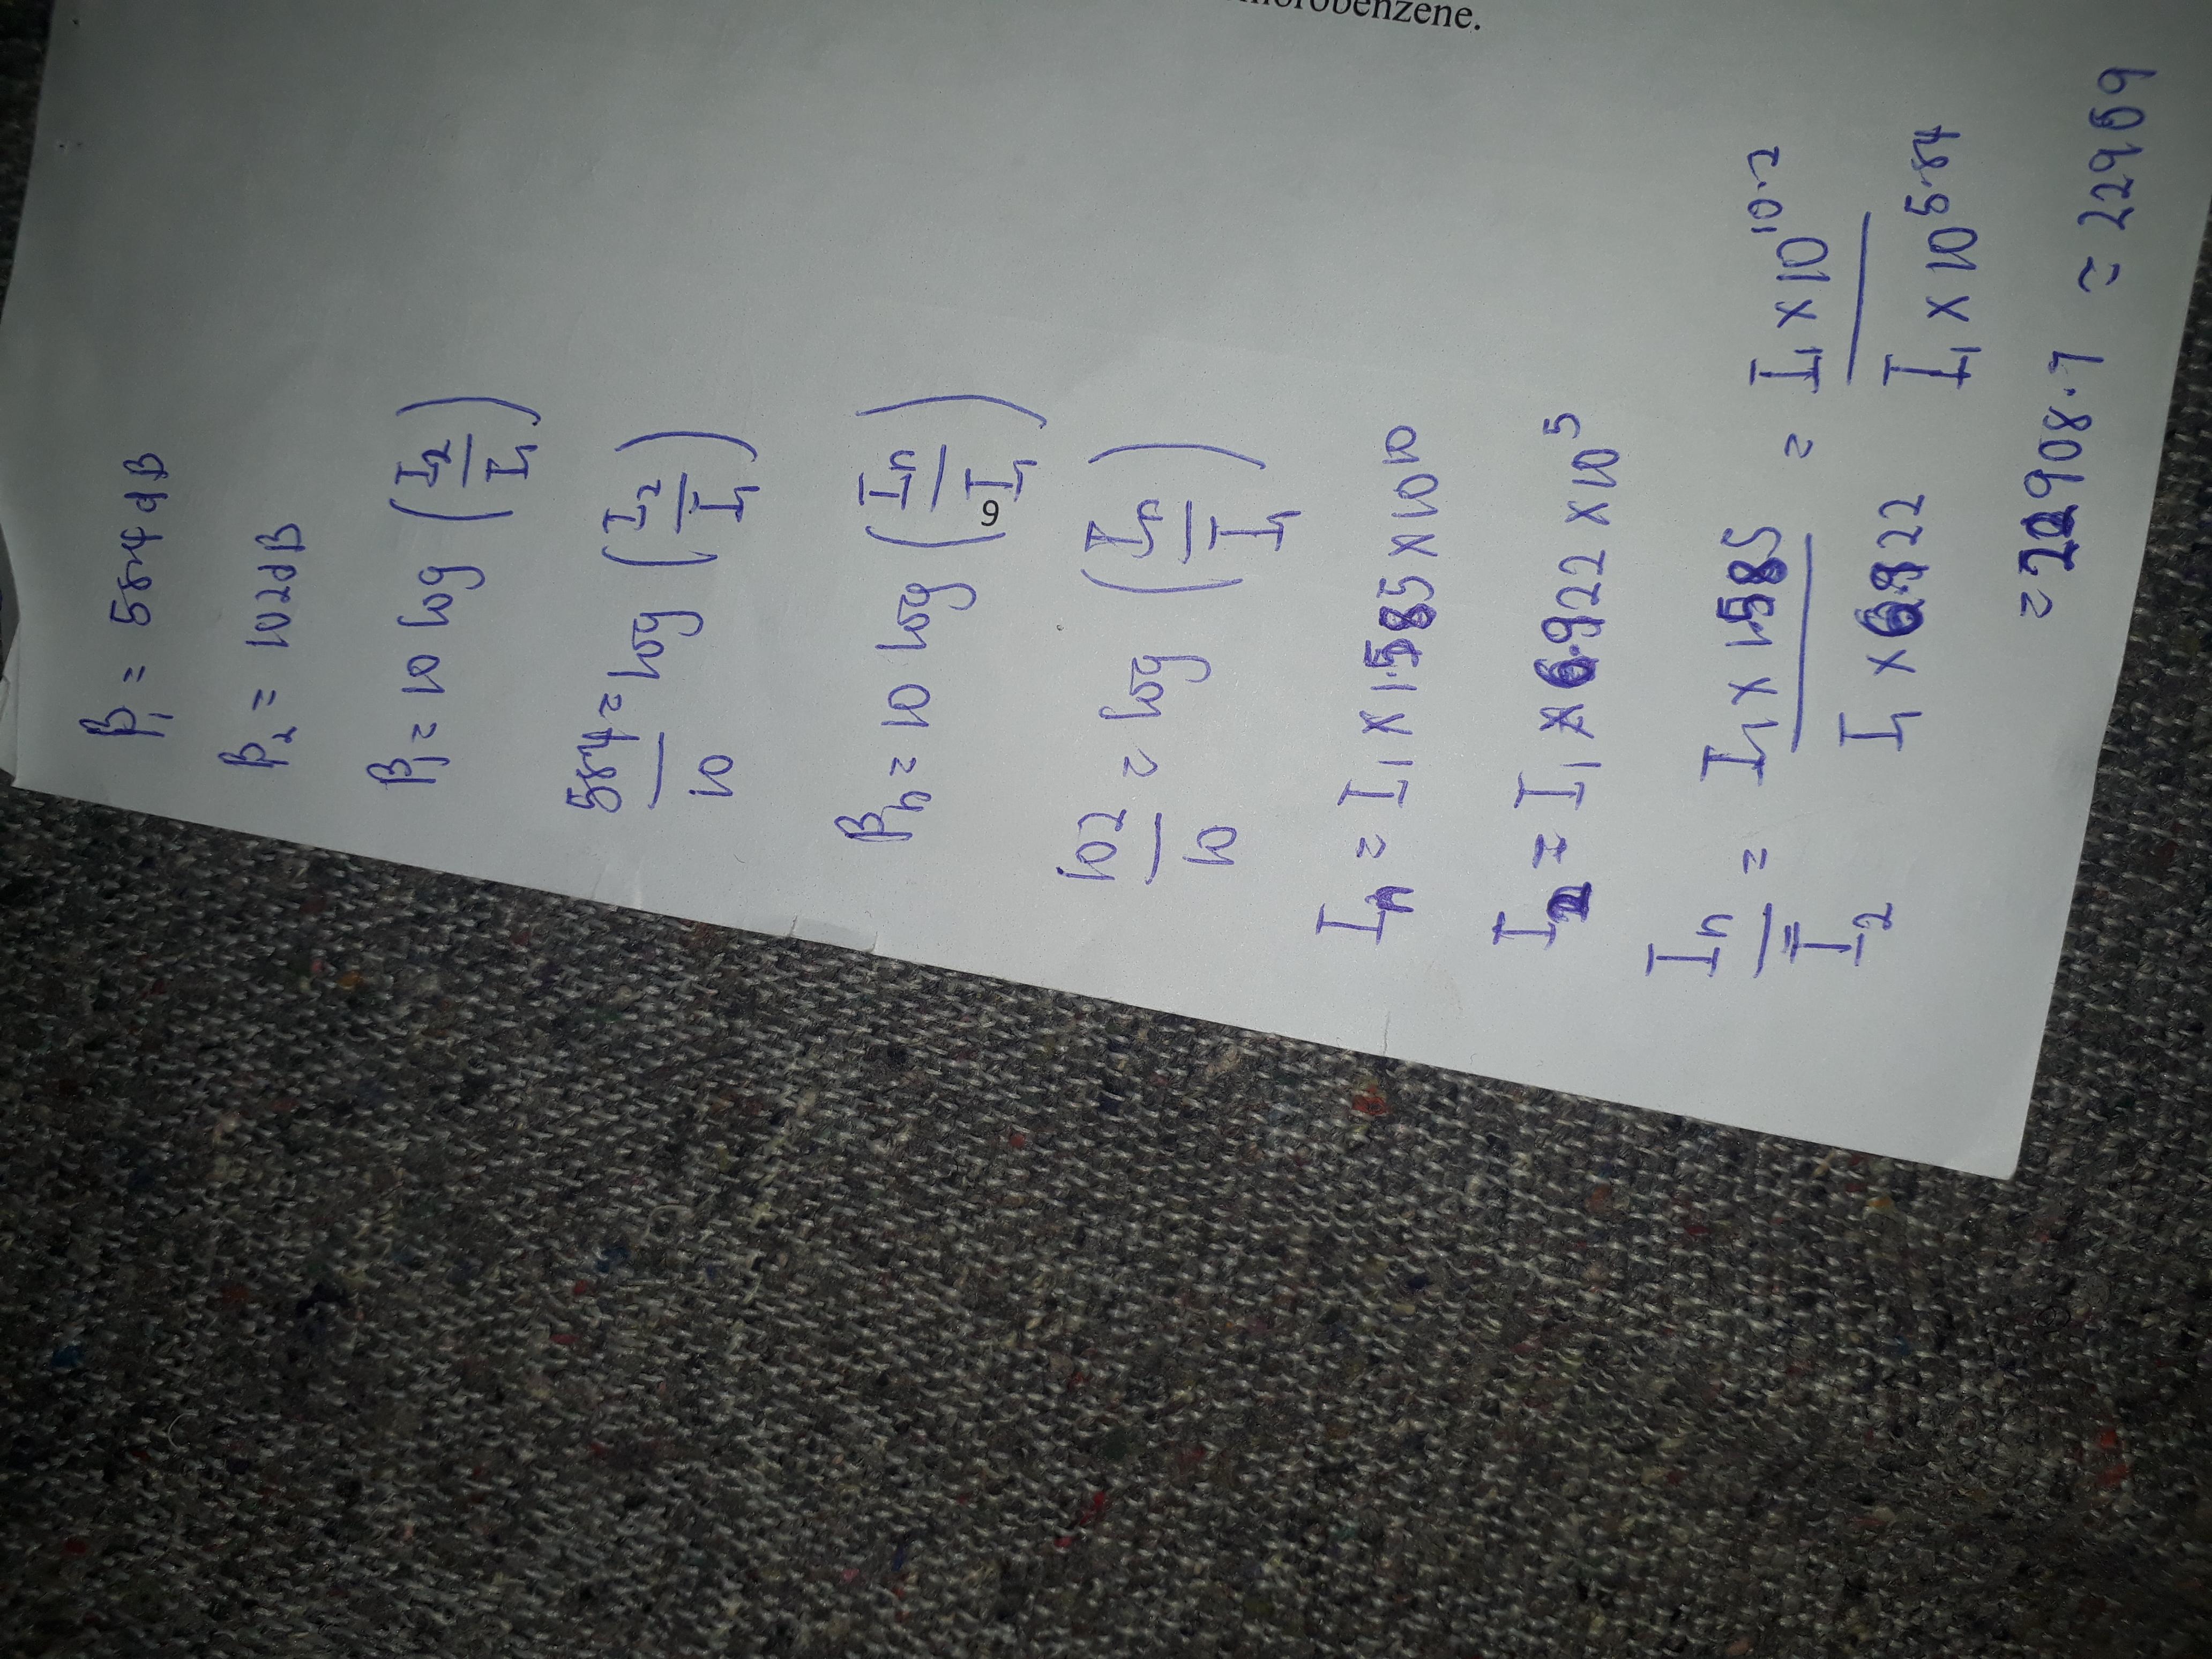 orobenzene.
β₁ = 58.4 dB
β₂ = 102dB
β₁ = 10 log (I₂/I₁)
58.4/10 = log (I₂/I₁)
β₄ = 10 log (In/I₁)
9
102/10 = log (In/I₁)
In = I₁ × 1.585 × 10¹⁰
I₂ = I₁ × 6.922 × 10⁵
In/I₂ = I₁ × 1.585/I₁ × 6.922 = I₁ × 10^10.2/I₁ × 10^5.84
= 22908.7 = 22909